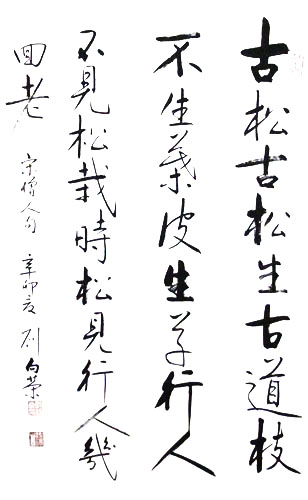 古松古松生古道枝
不生葉皮生草行人
不見松栽時松見行人幾
回老
宋僧人句 辛卯夏 刘向荣